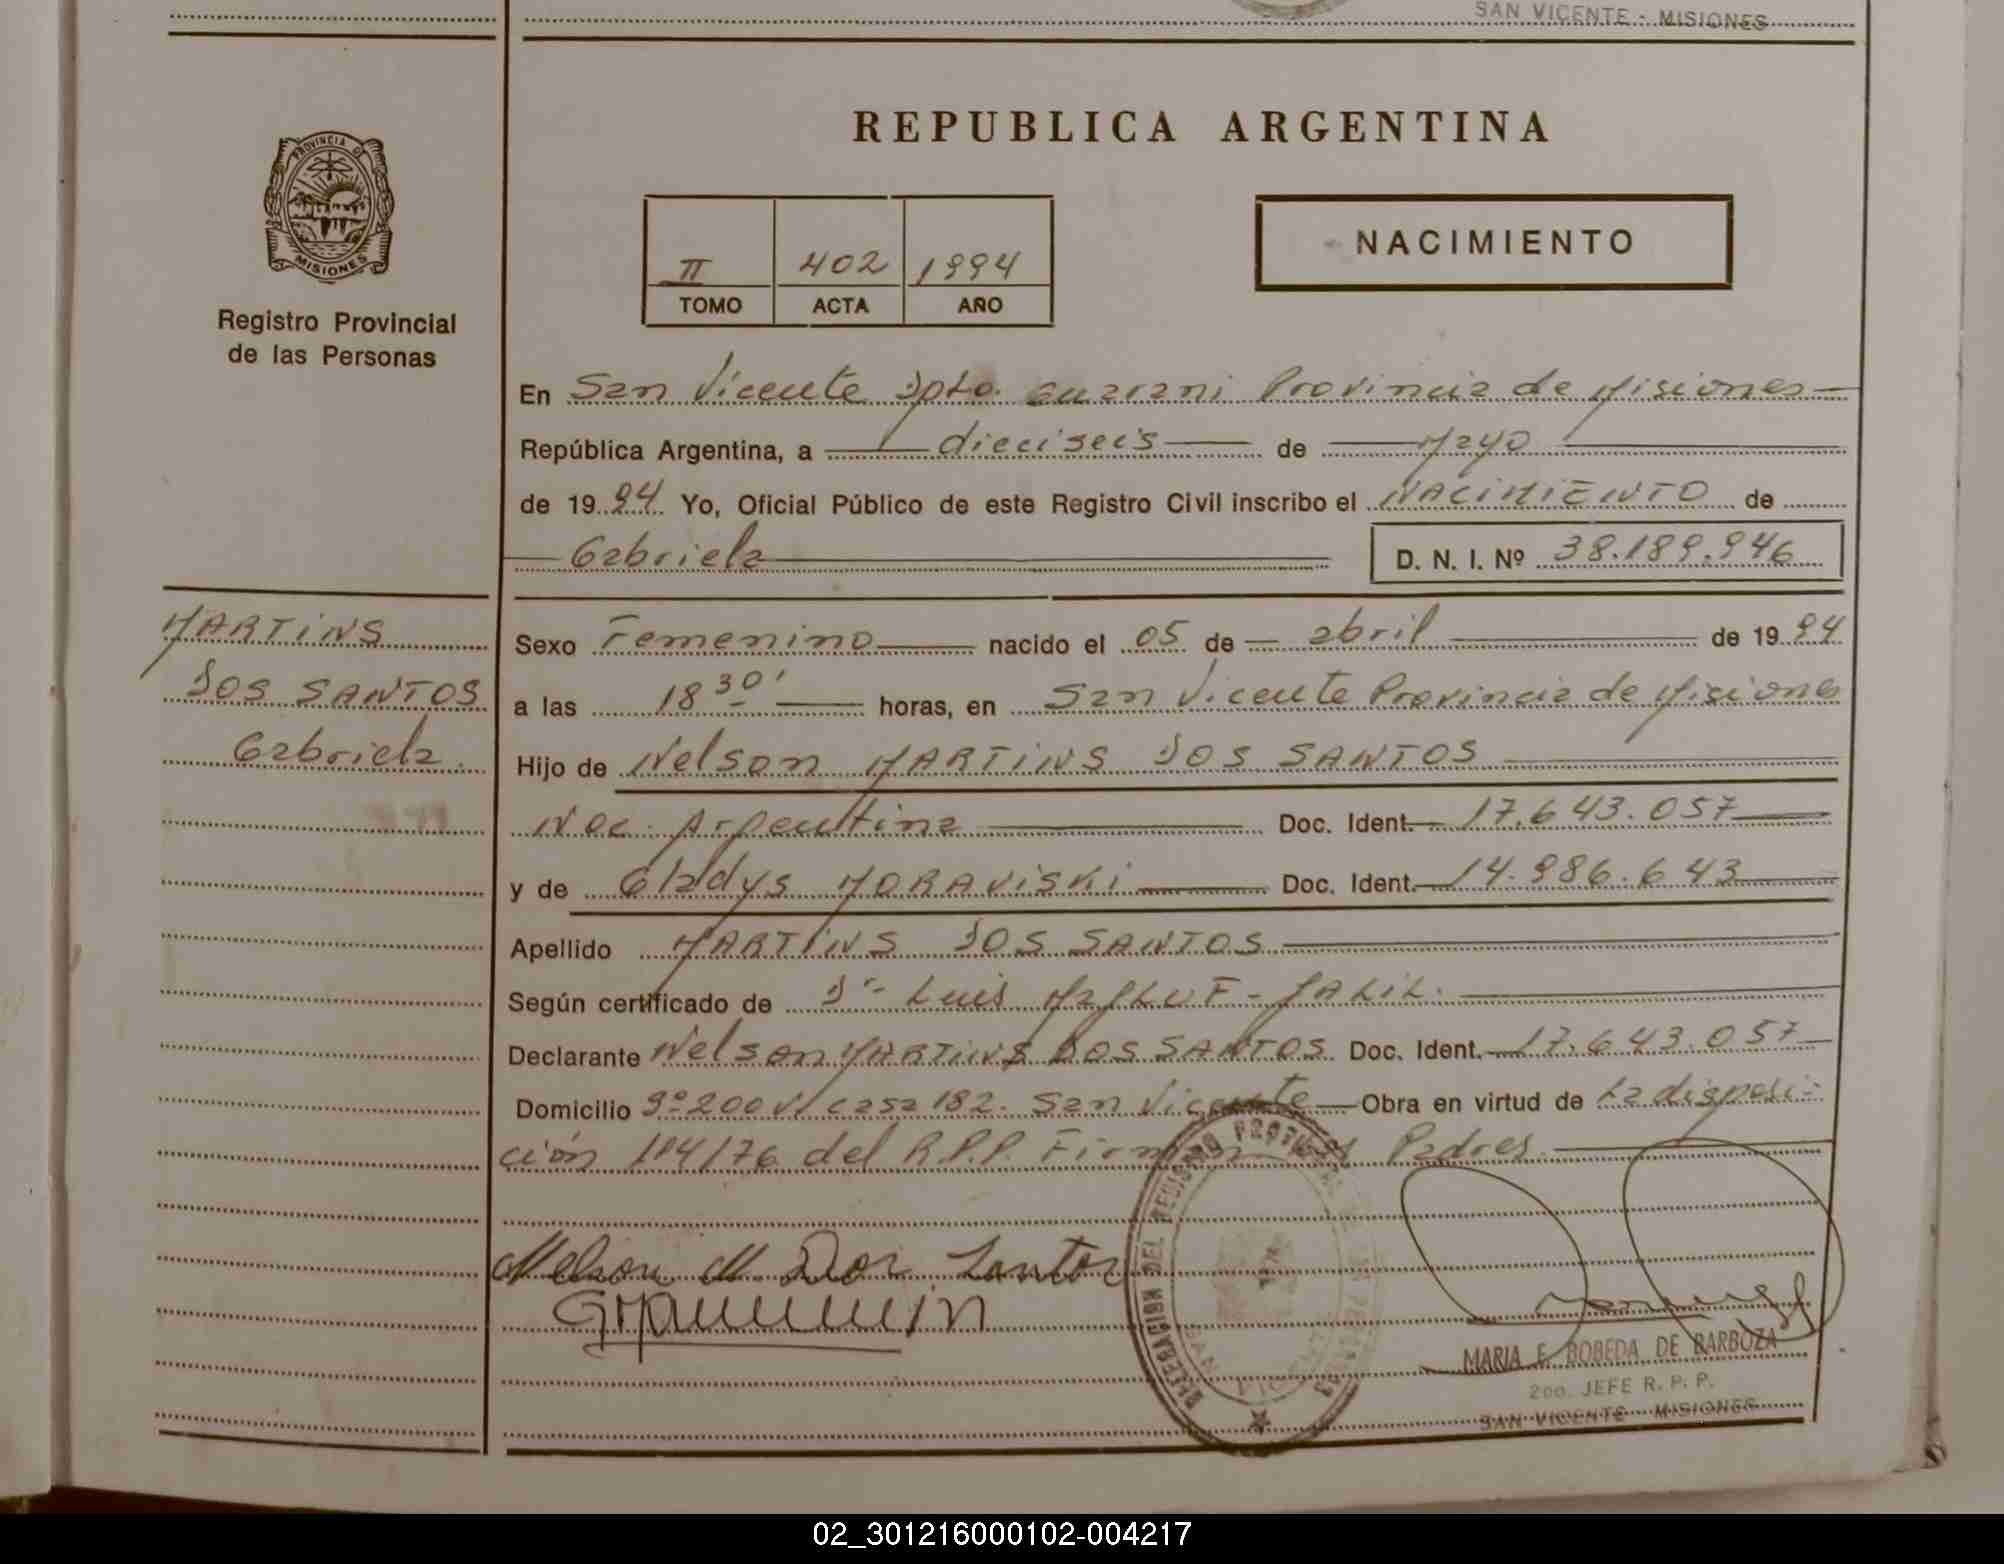 SAN VICENTE - MISIONES
PROVINCIA DE
MISIONES
Registro Provincial
de las Personas
REPUBLICA ARGENTINA
II 402 1994
TOMO ACTA AÑO
NACIMIENTO
En San Vicente Dpto. Guarani Provincia de Misiones
República Argentina, a dieciseis de Mayo
de 1994 Yo, Oficial Público de este Registro Civil inscribo el NACIMIENTO de
Gabriela D. N. I. Nº 38.189.946
MARTINS
DOS SANTOS
Gabriela.
Sexo Femenino nacido el 05 de abril de 1994
a las 18 30' horas, en San Vicente Provincia de Misiones
Hijo de Nelson MARTINS DOS SANTOS
Nac. Argentina Doc. Ident. 17.643.057
y de Gladys MORAVISKI Doc. Ident. 14.986.643
Apellido MARTINS DOS SANTOS
Según certificado de Dr. Luis JALIL.
Declarante Nelson MARTINS DOS SANTOS Doc. Ident. 17.643.057
Domicilio Bº 200 V. casa 182. San Vicente Obra en virtud de La disposi-
ción 114/76 del R.P.P. Firman Padres.
Nelson M Dos Santos
DELEGACION DEL REGISTRO
MARIA E. BOBEDA DE BARBOZA
2do. JEFE R. P. P.
SAN VICENTE MISIONES
02_301216000102-004217